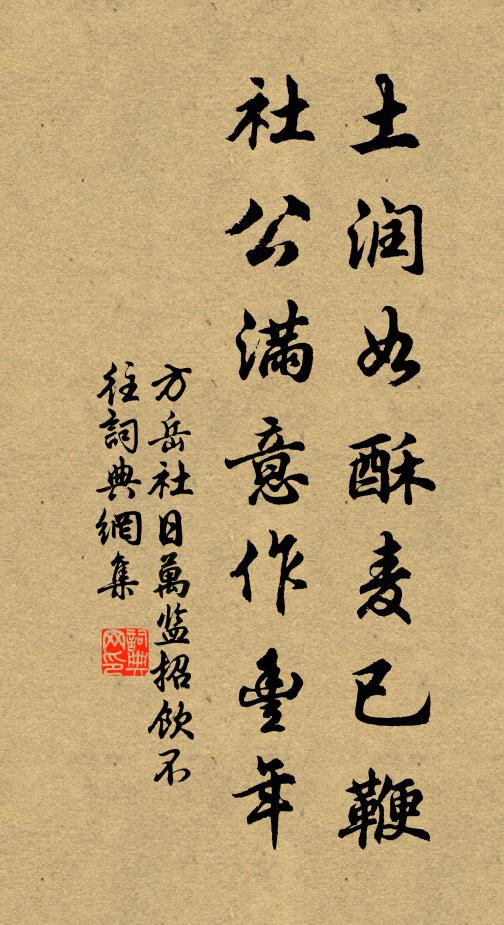 土润如酥麦已鞭
社公滿意作豐年
方岳社日萬监招飲不
往詞典網集
詞典网印